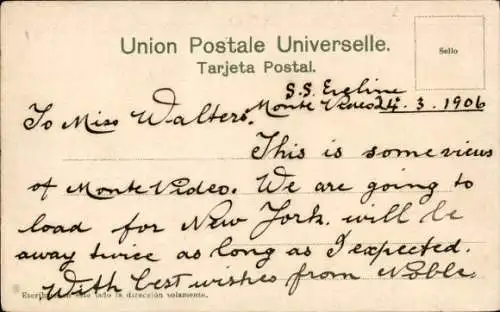 Union Postale Universelle.
Tarjeta Postal.
Sello
S.S. Eveline
Monte Video 24. 3. 1906
To Miss Walters.
This is some views
of Monte Video. We are going to
load for New York. will be
away twice as long as I expected.
With best wishes from Noble
Escribir en este lado la dirección solamente.